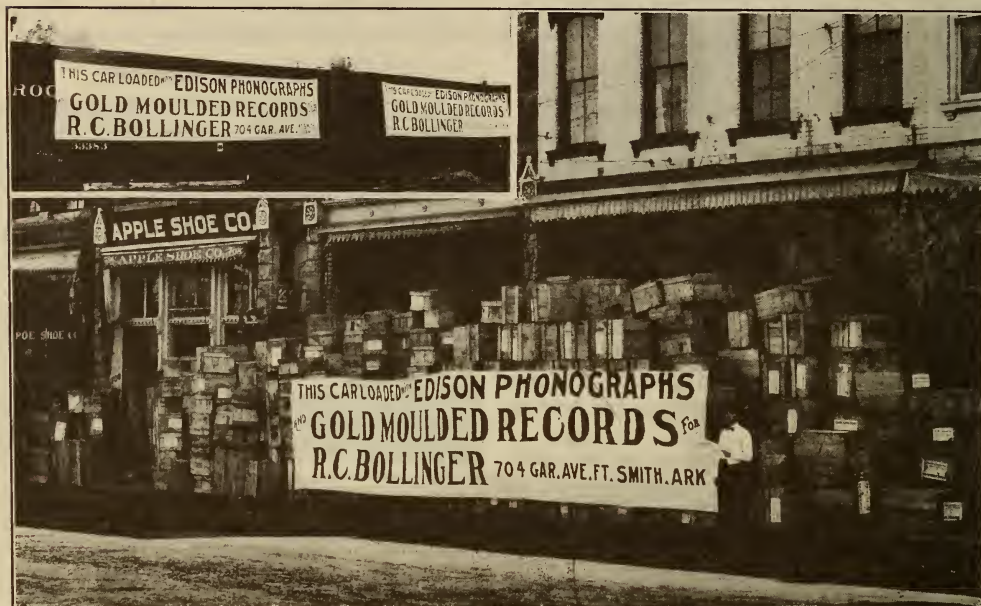 THIS CAR LOADED WITH EDISON PHONOGRAPHS
GOLD MOULDED RECORDS FOR
R.C.BOLLINGER 704 GAR. AVE.
33383
THIS CAR LOADED WITH EDISON PHONOGRAPHS
GOLD MOULDED RECORDS
R.C.BOLLINGER
ROC
APPLE SHOE CO.
APPLE SHOE CO.
SHOE
THIS CAR LOADED WITH EDISON PHONOGRAPHS
AND GOLD MOULDED RECORDS FOR
R.C.BOLLINGER 704 GAR.AVE.FT.SMITH.ARK